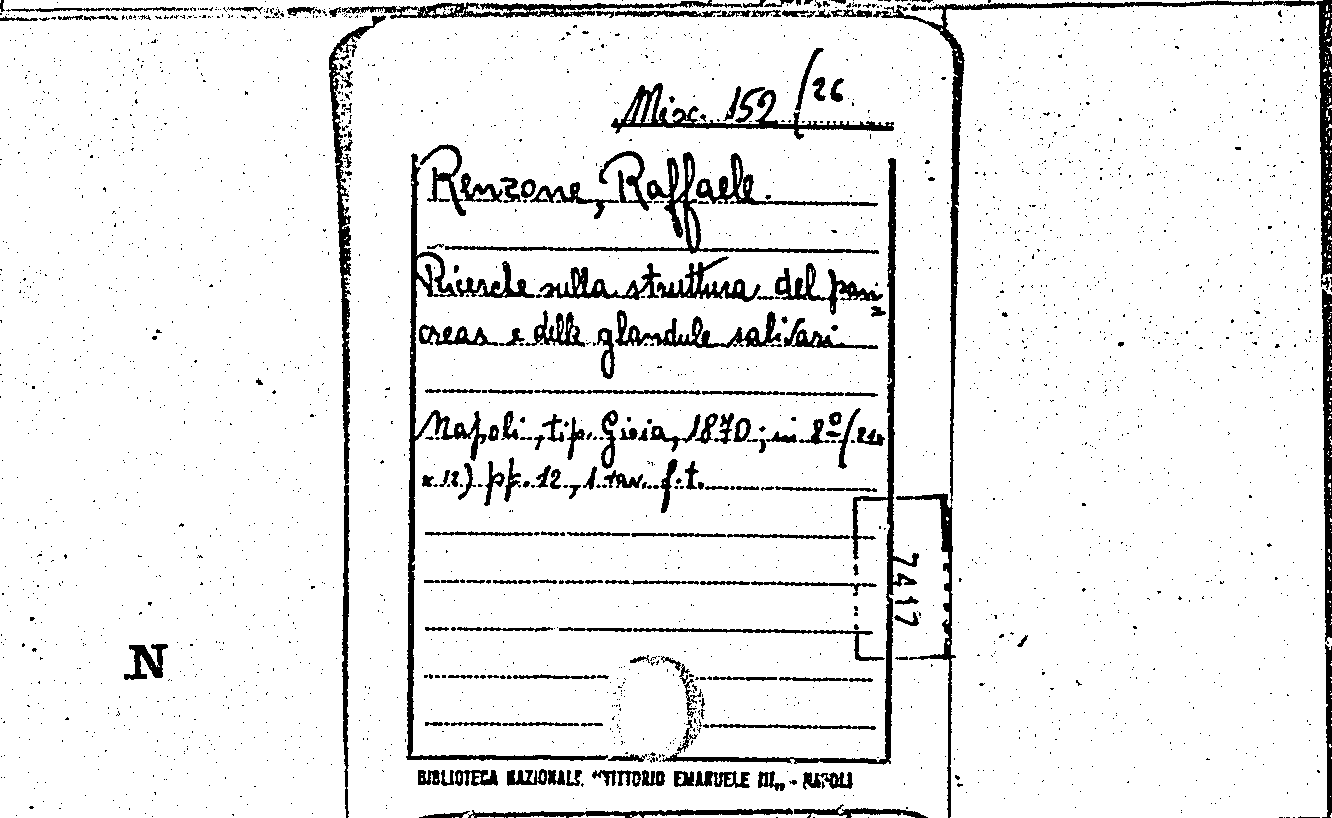 Misc. 152/26
Renzone, Raffaele.
Ricerche sulla struttura del pan=
creas e delle glandule salivari.
Napoli, tip. Gioia, 1870; in 8º/21
x 12) pp. 12, 1 tav. f.t.
7417
N
BIBLIOTECA NAZIONALE "VITTORIO EMANUELE III„ - NAPOLI